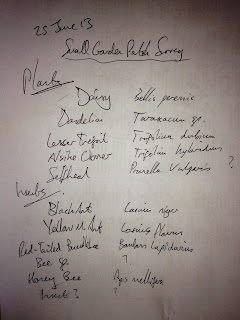 25 June 13
Small Garden Patch Survey
Plants
Daisy Bellis perennis
Dandelion Taraxacum sp.
Lesser Trefoil Trifolium dubium
Alsike Clover Trifolium hybridum
Selfheal Prunella Vulgaris ?
Insects
Black Ant Lasius niger
Yellow M Ant Lasius flavus
Red-Tailed Bumblebee Bombus Lapidarius
Bee sp ?
Honey Bee Apis mellifera
Insects? ?